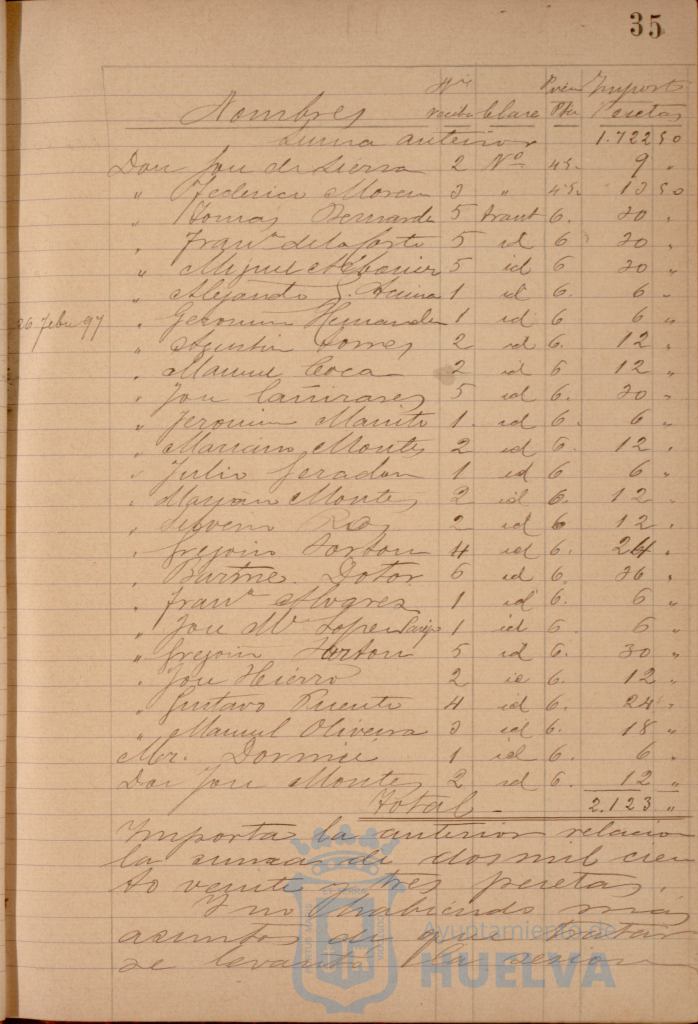 35
Nombres Nº recibo Clase Precio Ptas Importe Pesetas
Suma anterior 1.722 50
Don José de Sierra 2 Nº 4 5. 9 "
" Federico Moren 3 " 4 5. 13 50
" Tomas Bernarde 5 trant 6. 30 "
" Franco de la Corte 5 id 6 30 "
" Miguel 5 id 6 30 "
" Alejandro J. 1 id 6. 6 "
26 Febro 97 " Geronimo Hernandez 1 id 6 6 "
" Agustin Torres 2 id 6. 12 "
" Manuel Coca 2 id 6 12 "
" José Cañizares 5 id 6. 30 "
" Jeronimo 1. id 6. 6 "
" Mariano Montes 2 id 6. 12 "
" Julio 1 id 6 6 "
" Montes 2 id 6. 12 "
" Severo Ros 2 id 6 12 "
" Gregorio 4 id 6. 24 "
" Bartme. Dotor 6 id 6. 36 "
" Franco Alvarez 1 id 6. 6 "
" José Mª Lopez 1 id 6. 6 "
" Gregorio 5 id 6. 30 "
" José Hierro 2 id 6. 12 "
" Gustavo Puente 4 id 6. 24 "
" Manuel Oliveira 3 id 6. 18 "
Mr. 1 id 6. 6 "
Don José Montes 2 id 6. 12 "
Total - 2.123 "
Importa la anterior relacion
la suma de dos mil cien
to veinte y tres pesetas.
Y no habiendo mas
asuntos de que tratar
se levantó la sesion
Ayuntamiento de
HUELVA